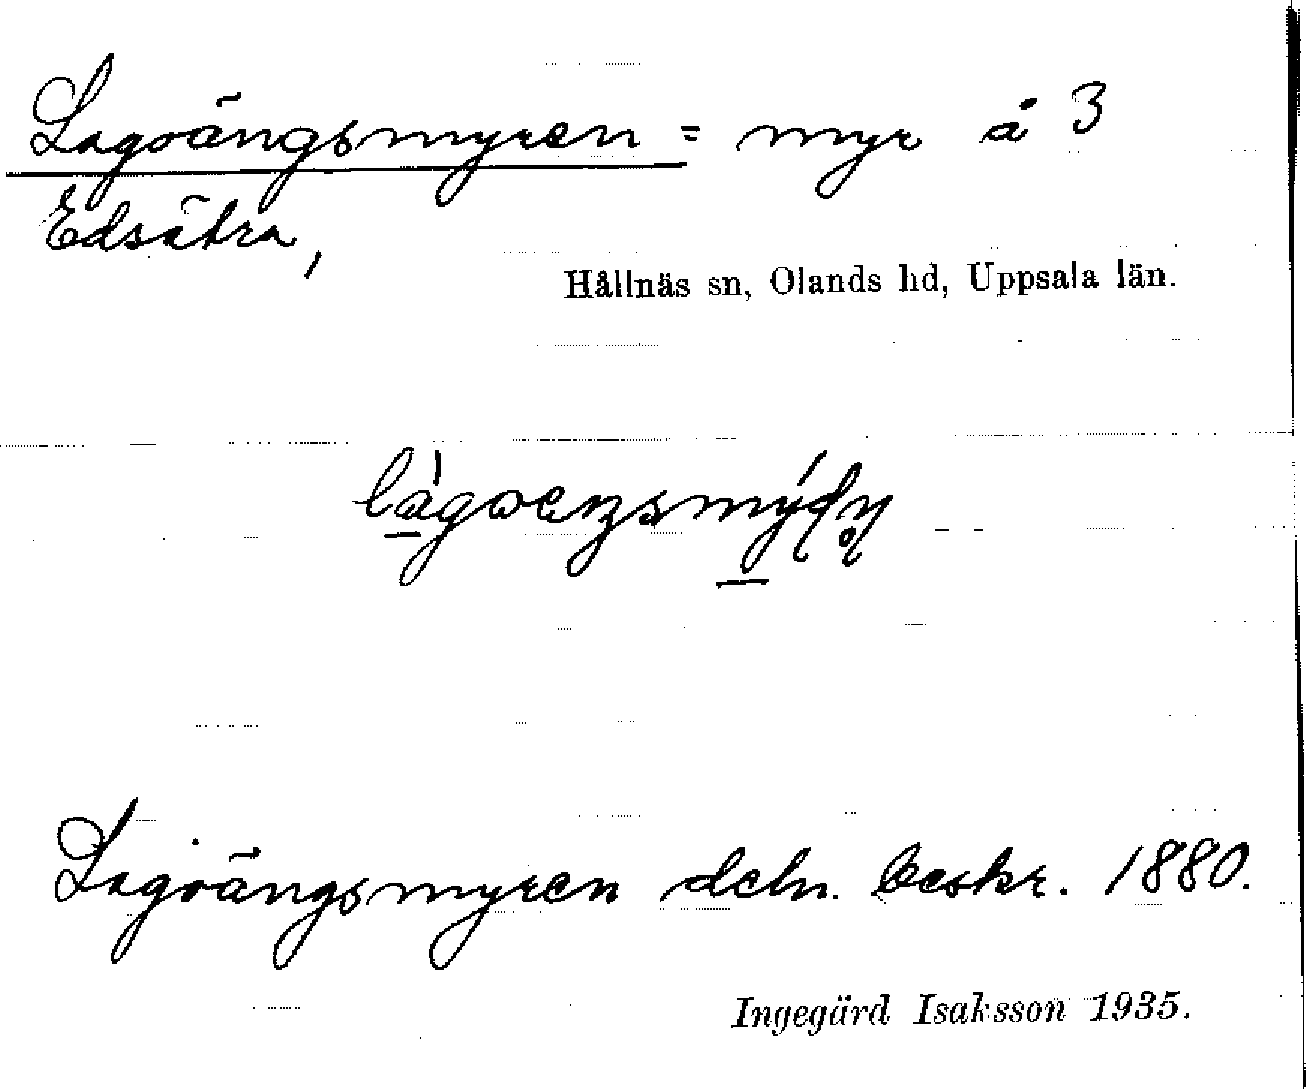 Lagvängsmyren = myr å 3
Edsätra,
Hållnäs sn, Olands hd, Uppsala län.
Lagvängsmyren beskr. 1880.
Ingegärd Isaksson 1935.